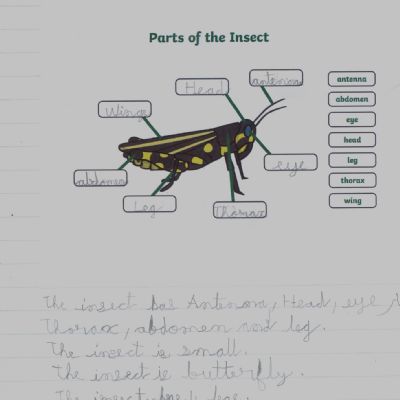 Parts of the Insect
Head
antenna
Wings
eye
abdomen
Leg
Thorax
antenna
abdomen
eye
head
leg
thorax
wing
The insect has Antenna, Head, eye
Thorax, abdomen and leg.
The insect is small.
The insect is butterfly.
The insect